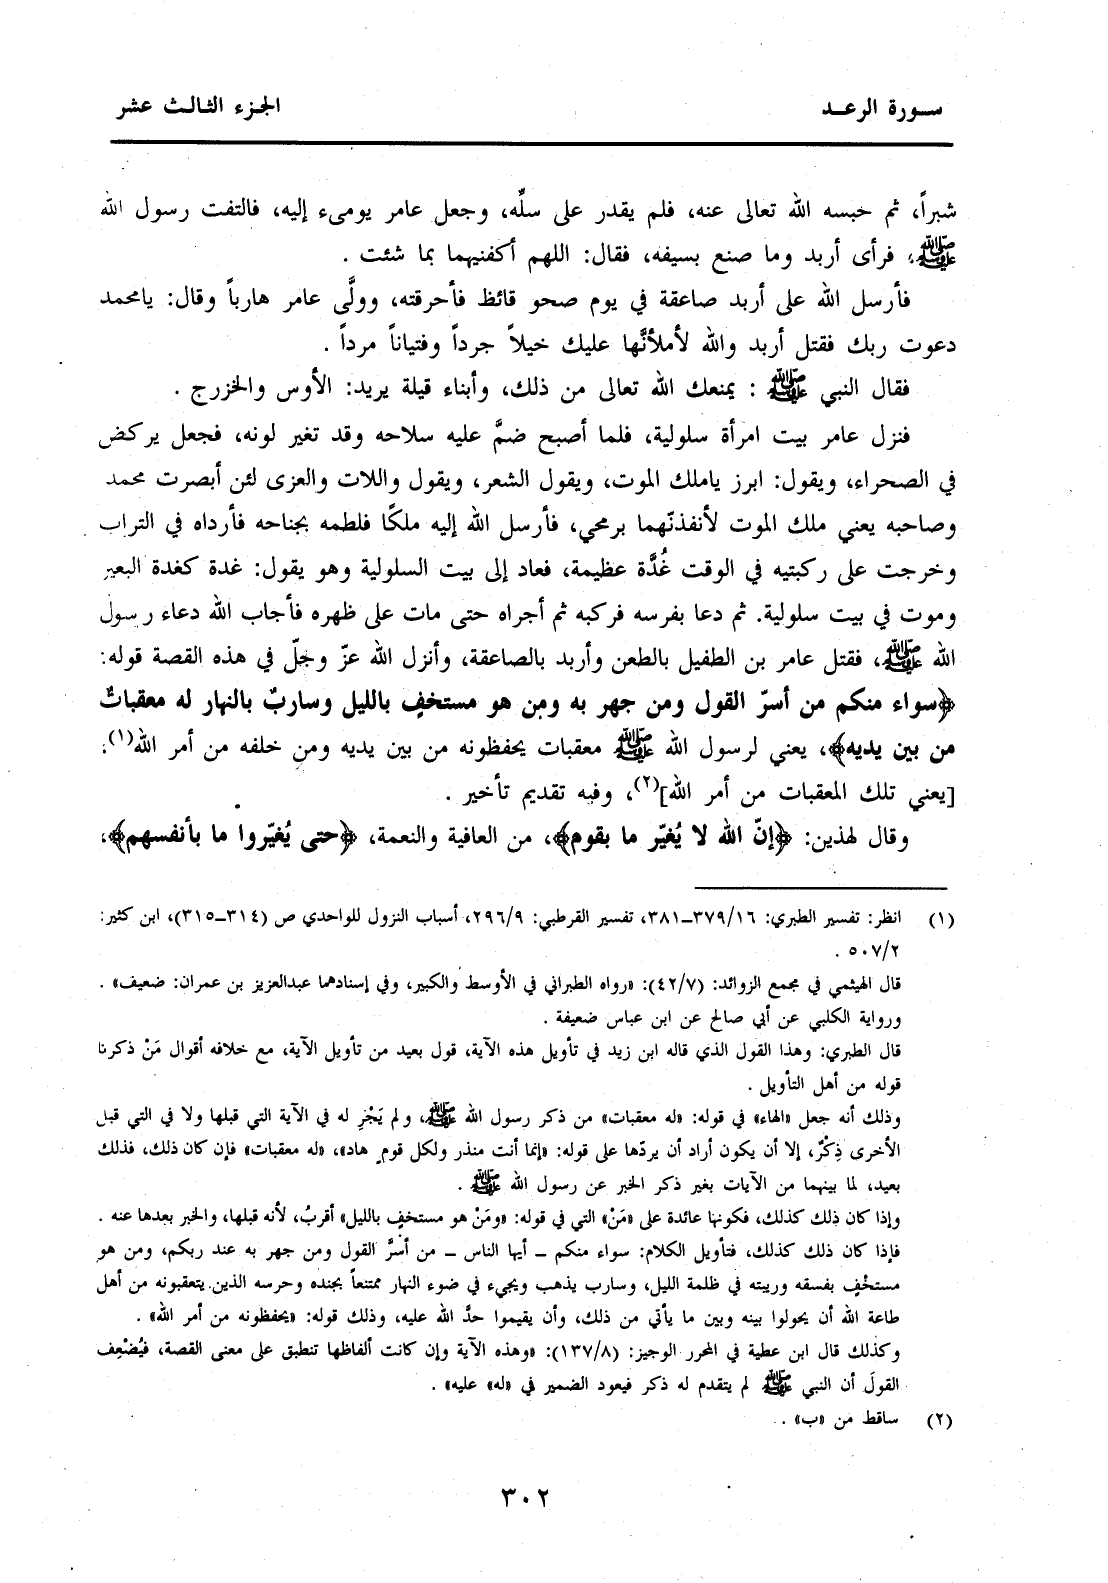 سورة الرعد
الجزء الثالث عشر
شبراً، ثم حبسه الله تعالى عنه، فلم يقدر على سلّه، وجعل عامر يومىء إليه، فالتفت رسول الله
ﷺ، فرأى أربد وما صنع بسيفه، فقال: اللهم أكفنيهما بما شئت .
فأرسل الله على أربد صاعقة في يوم صحو قائظ فأحرقته، وولَّى عامر هارباً وقال: يامحمد
دعوت ربك فقتل أربد والله لأملأنَّها عليك خيلاً جرداً وفتياناً مرداً .
فقال النبي ﷺ : يمنعك الله تعالى من ذلك، وأبناء قيلة يريد: الأوس والخزرج .
فنزل عامر بيت امرأة سلولية، فلما أصبح ضمَّ عليه سلاحه وقد تغير لونه، فجعل يركض
في الصحراء، ويقول: ابرز ياملك الموت، ويقول الشعر، ويقول واللات والعزى لئن أبصرت محمد
وصاحبه يعني ملك الموت لأنفذنّهما برمحي، فأرسل الله إليه ملكًا فلطمه بجناحه فأرداه في التراب
وخرجت على ركبتيه في الوقت غُدَّة عظيمة، فعاد إلى بيت السلولية وهو يقول: غدة كغدة البعير
وموت في بيت سلولية. ثم دعا بفرسه فركبه ثم أجراه حتى مات على ظهره فأجاب الله دعاء رسول
الله ﷺ، فقتل عامر بن الطفيل بالطعن وأربد بالصاعقة، وأنزل الله عزّ وجلّ في هذه القصة قوله:
﴿سواء منكم من أسرّ القول ومن جهر به ومن هو مستخفٍ بالليل وساربٌ بالنهار له معقباتٌ
من بين يديه﴾، يعني لرسول الله ﷺ معقبات يحفظونه من بين يديه ومن خلفه من أمر الله(١)،
[يعني تلك المعقبات من أمر الله](٢)، وفيه تقديم تأخير .
وقال لهذين: ﴿إنّ الله لا يُغيّر ما بقوم﴾، من العافية والنعمة، ﴿حتى يُغيّروا ما بأنفسهم﴾،
(١) انظر: تفسير الطبري: ١٦/٣٧٩-٣٨١، تفسير القرطبي: ٢٩٦/٩، أسباب النزول للواحدي ص (٣١٤-٣١٥)، ابن كثير:
٥٠٧/٢ .
قال الهيثمي في مجمع الزوائد: (٤٢/٧): «رواه الطبراني في الأوسط والكبير، وفي إسنادهما عبدالعزيز بن عمران: ضعيف» .
ورواية الكلبي عن أبي صالح عن ابن عباس ضعيفة .
قال الطبري: وهذا القول الذي قاله ابن زيد في تأويل هذه الآية، قول بعيد من تأويل الآية، مع خلافه أقوال مَنْ ذكرنا
قوله من أهل التأويل .
وذلك أنه جعل «الهاء» في قوله: «له معقبات» من ذكر رسول الله ﷺ، ولم يَجْرِ له في الآية التي قبلها ولا في التي قبل
الأخرى ذِكْرٌ، إلا أن يكون أراد أن يردّها على قوله: «إنما أنت منذر ولكل قوم هاد»، «له معقبات» فإن كان ذلك، فذلك
بعيد، لما بينهما من الآيات بغير ذكر الخبر عن رسول الله ﷺ .
وإذا كان ذلك كذلك، فكونها عائدة على «مَنْ» التي في قوله: «ومَنْ هو مستخفٍ بالليل» أقربُ، لأنه قبلها، والخبر بعدها عنه .
فإذا كان ذلك كذلك، فتأويل الكلام: سواء منكم – أيها الناس – من أسرَّ القول ومن جهر به عند ربكم، ومن هو
مستخْفٍ بفسقه وريبته في ظلمة الليل، وسارب يذهب ويجيء في ضوء النهار ممتنعاً بجنده وحرسه الذين يتعقبونه من أهل
طاعة الله أن يحولوا بينه وبين ما يأتي من ذلك، وأن يقيموا حدَّ الله عليه، وذلك قوله: «يحفظونه من أمر الله» .
وكذلك قال ابن عطية في المحرر الوجيز: (١٣٧/٨): «وهذه الآية وإن كانت ألفاظها تنطبق على معنى القصة، فيُضْعِف
القولَ أن النبي ﷺ لم يتقدم له ذكر فيعود الضمير في «له» عليه» .
(٢) ساقط من «ب» .
٣٠٢